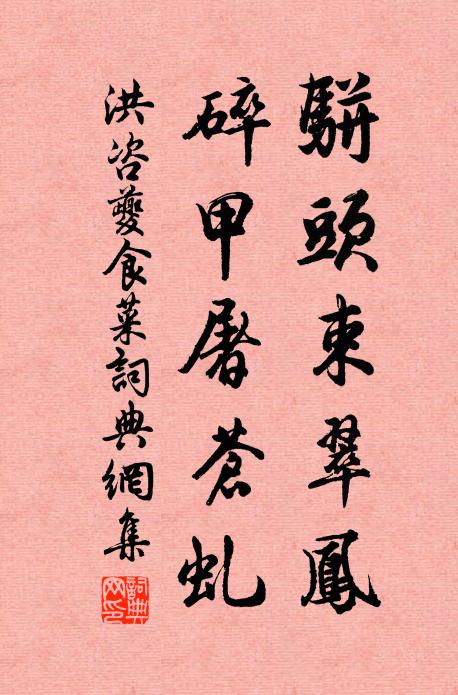 駢頭束翠鳳
碎甲屠蒼虬
洪咨夔食菜詞典網集
詞典網印